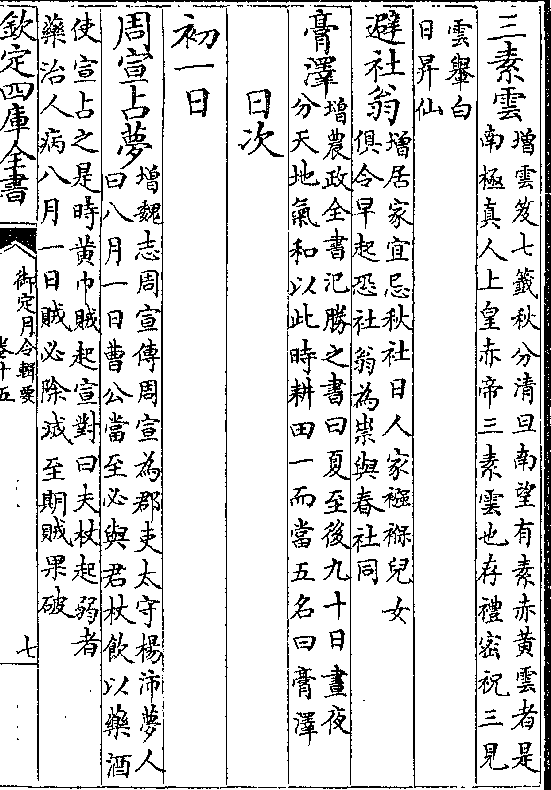 三素雲增雲笈七籤秋分清旦南望有素赤黃雲者是
南極真人上皇赤帝三素雲也存禮密祝三見
雲轝白
日昇仙
避社翁增居家宜忌秋社日人家襁褓兒女
俱令早起恐社翁為祟與春社同
膏澤增農政全書氾勝之書曰夏至後九十日晝夜
分天地氣和以此時耕田一而當五名曰膏澤
日次
初一日
周宣占夢增魏志周宣傳周宣為郡吏太守楊沛夢人
曰八月一日曹公當至必與君杖飲以藥酒
使宣占之是時黃巾賊起宣對曰夫杖起弱者
藥治人病八月一日賊必除滅至期賊果破
欽定四庫全書
御定月令輯要
卷十五
七